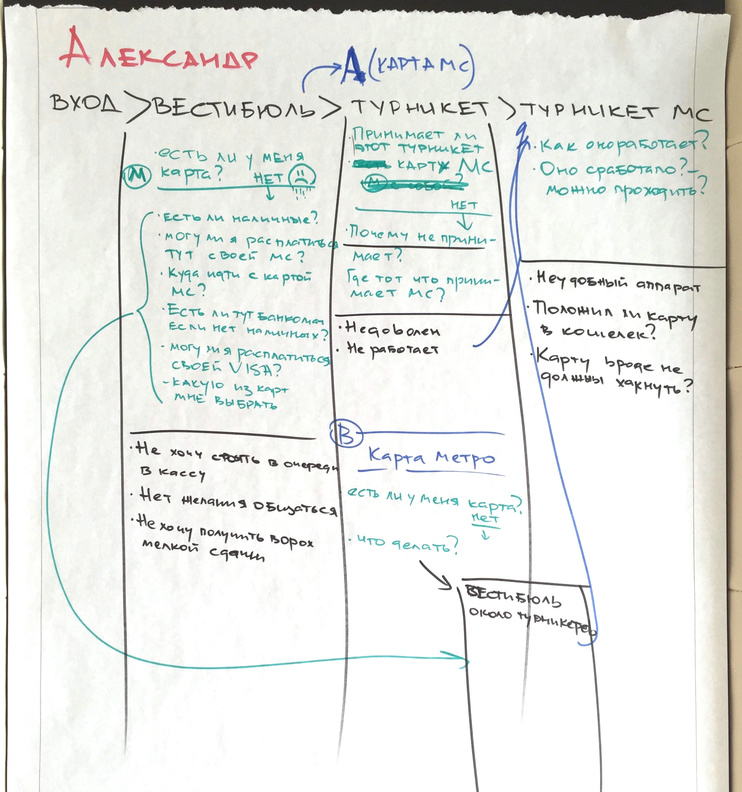 Александр
А (КАРТА МС)
ВХОД > ВЕСТИБЮЛЬ > ТУРНИКЕТ > ТУРНИКЕТ МС
М
· есть ли у меня
карта? НЕТ
· Есть ли наличные?
· могу ли я расплатиться
тут своей МС?
· Куда идти с картой
МС?
· Есть ли тут банкомат
если нет наличных?
· могу ли я расплатиться
своей VISA?
- какую из карт
мне выбрать
· Не хочу стоять в очереди
в кассу
· Нет желания общаться
· Не хочу получить ворох
мелкой сдачи
· Принимает ли
этот турникет
карту МС
НЕТ
· Почему не прини-
мает?
Где тот что прини-
мает МС?
· Недоволен
· Не работает
В
Карта метро
есть ли у меня карта?
нет
· что делать?
ВЕСТИБЮЛЬ
около турникетов
· Как оно работает?
· Оно сработало? -
можно проходить?
· Неудобный аппарат
· Положил ли карту
в кошелек?
· Карту вроде не
должны хакнуть?